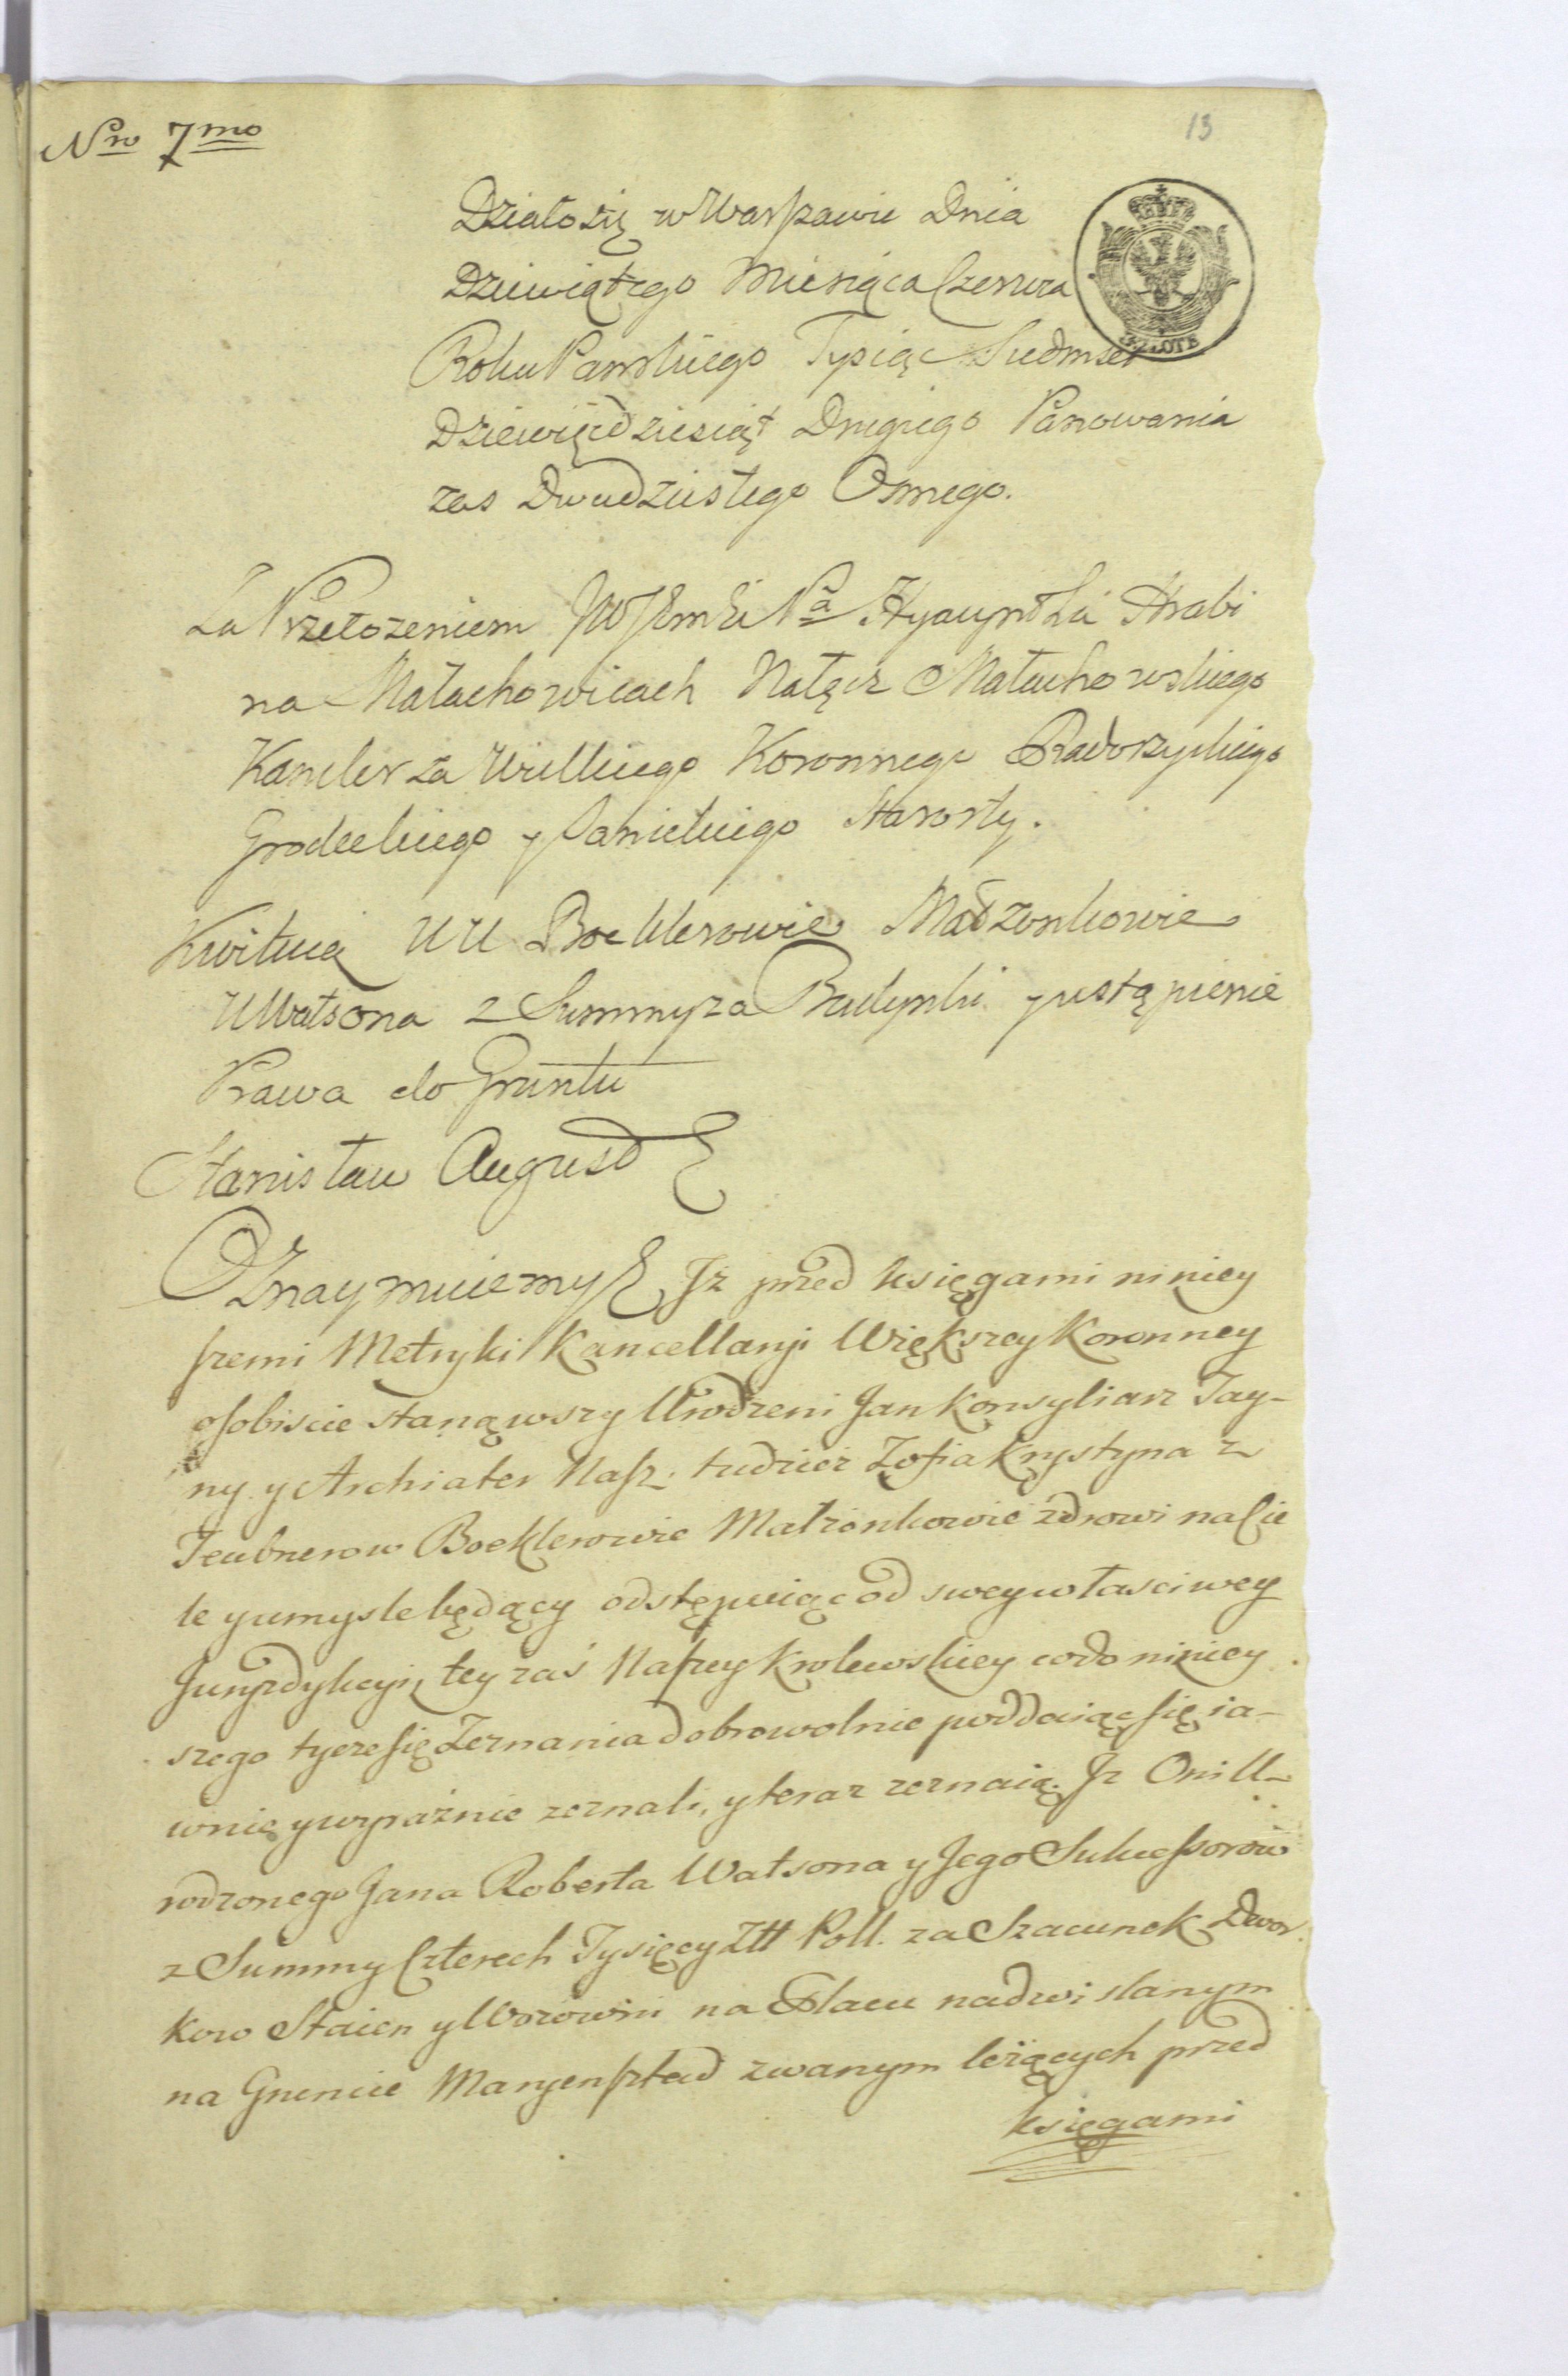 Nro 7mo
13
Działo się w Warszawie Dnia
Dziewiątego Miesiąca Czerwca
Roku Pańskiego Tysiąc Siedmset
Dziewięćdziesiąt Drugiego Panowania
zas Dwudziestego Osmego.
ZŁOTE
Za Przełozeniem JW JEmĆi Pa Hyacyntha Hrabi
na Małachowicach Nałęcz Małachowskiego
Kanclerza Wielkiego Koronnego Radoszyckiego
Grodeckiego y Sanickiego Starosty.
Kwituią UU Boeklerowie Małzonkowie
U Watsona z Summy za Budynki y ustąpienie
Prawa do Gruntu
Stanisław August
Oznaymuiemy Jż przed księgami niniey
szemi Metryki Kancellaryi Większey Koronney
osobiscie stanąwszy Urodzeni Jan Konsyliarz Tay-
ny y Archiater Nasz. tudzież Zofia Krystyna z
Teubnerow Boeklerowie Małżonkowie zdrowi na Cie
le y umysle będący odstępuiąc od swey własciwey
Juryzdykcyi, tey zaś Naszey Krolewskiey co do niniey
szego tycze się Zeznania dobrowolnie poddaiąc się ia-
wnie y wyraźnie zeznali, y teraz zeznaią. Jż Oni U-
rodzonego Jana Roberta Watsona y Jego Sukcessorow
z Summy Czterech Tysięcy Złł Poll. za Szacunek Dwor
kow Staien y Wozowni na Placu nadwislanym
na Gruncie Maryensztad zwanym leżących przed
księgami